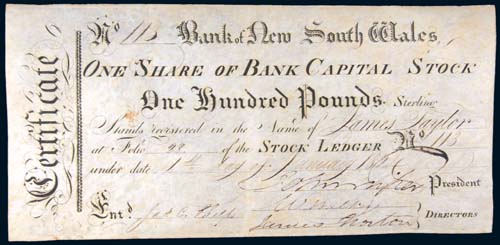 Certificate
No 113 Bank of New South Wales,
ONE SHARE OF BANK CAPITAL STOCK
One Hundred Pounds. Sterling
Stands registered in the Name of James Taylor
at Folio of the STOCK LEDGER No 113
under date 1st day of January
John President
Entd.
James Norton DIRECTORS